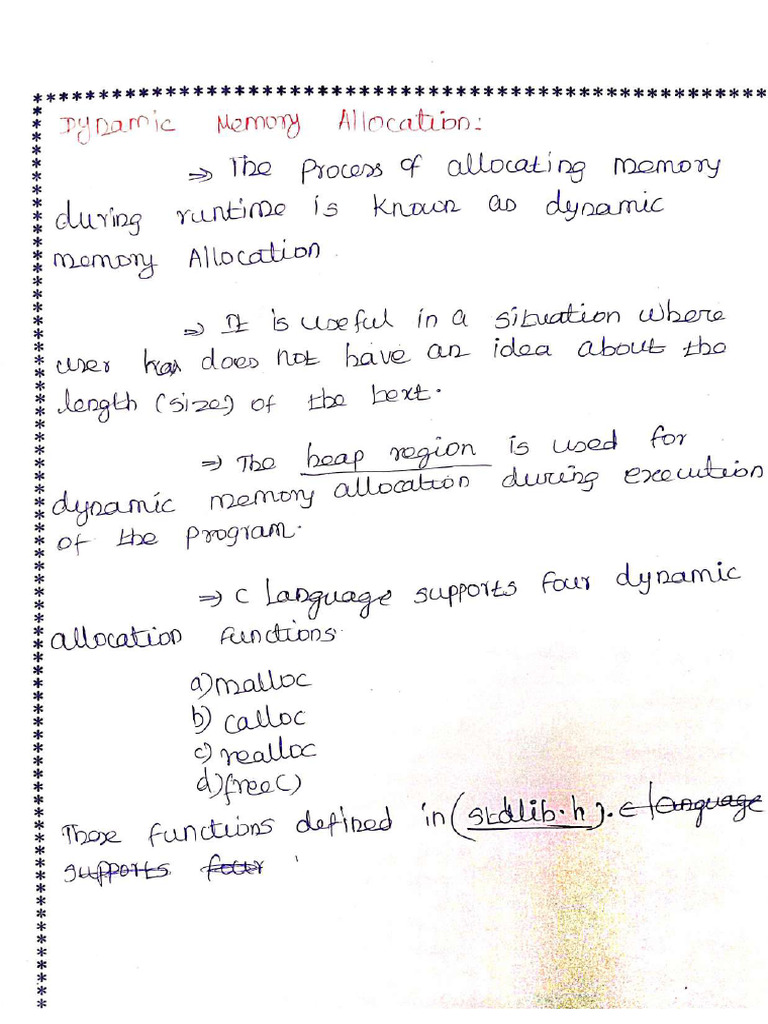 Dynamic Memory Allocation:
⇒ The process of allocating memory
during runtime is known as dynamic
memory Allocation.
⇒ It is useful in a situation where
user has does not have an idea about the
length (size) of the text.
⇒ The heap region is used for
dynamic memory allocation during execution
of the program.
⇒ C Language supports four dynamic
allocation functions.
a) malloc
b) calloc
c) realloc
d) free()
These functions defined in (stdlib.h). C language
supports four